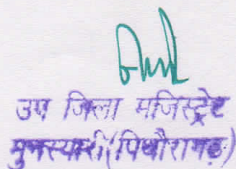 उप जिला मजिस्ट्रेट
मुनस्यारी(पिथौरागढ़)